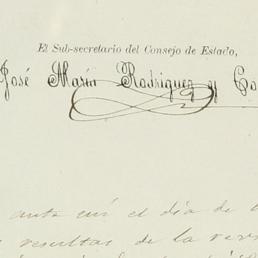 El Sub-secretario del Consejo de Estado,
José María Rodriguez y Co
ante mí el día de
resultas de la